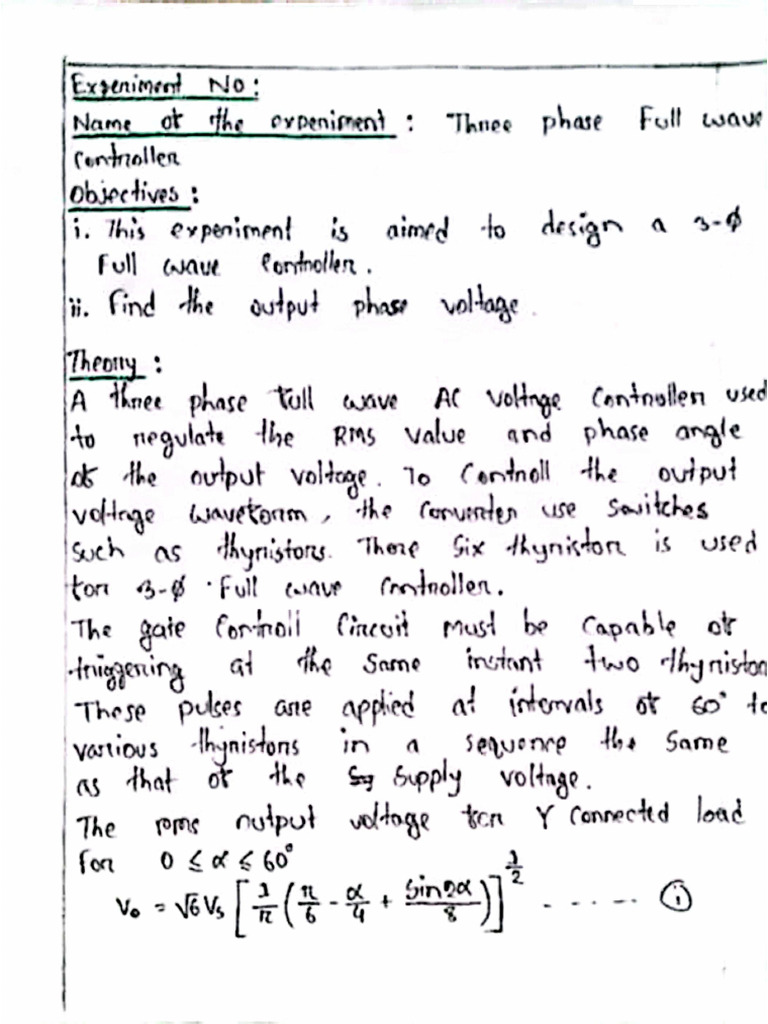 Experiment No:
Name of the experiment : Three phase Full wave
Controller
Objectives :
i. This experiment is aimed to design a 3-φ
Full wave Controller.
ii. Find the output phase voltage.
Theory :
A three phase full wave AC voltage Controller used
to regulate the RMS value and phase angle
of the output voltage. To Controll the output
voltage waveform, the Converter use Switches
such as thyristors. There Six thyristor is used
for 3-φ Full wave Controller.
The gate Controll Circuit must be Capable of
triggering at the Same instant two thyristor
These pulses are applied at intervals of 60° to
various thyristors in a sequence the Same
as that of the Supply voltage.
The rms output voltage for Y Connected load
for 0 ≤ α ≤ 60°
V₀ = √6 Vs [1/π (π/6 - α/4 + sin2α/8)]^1/2 ........ (i)